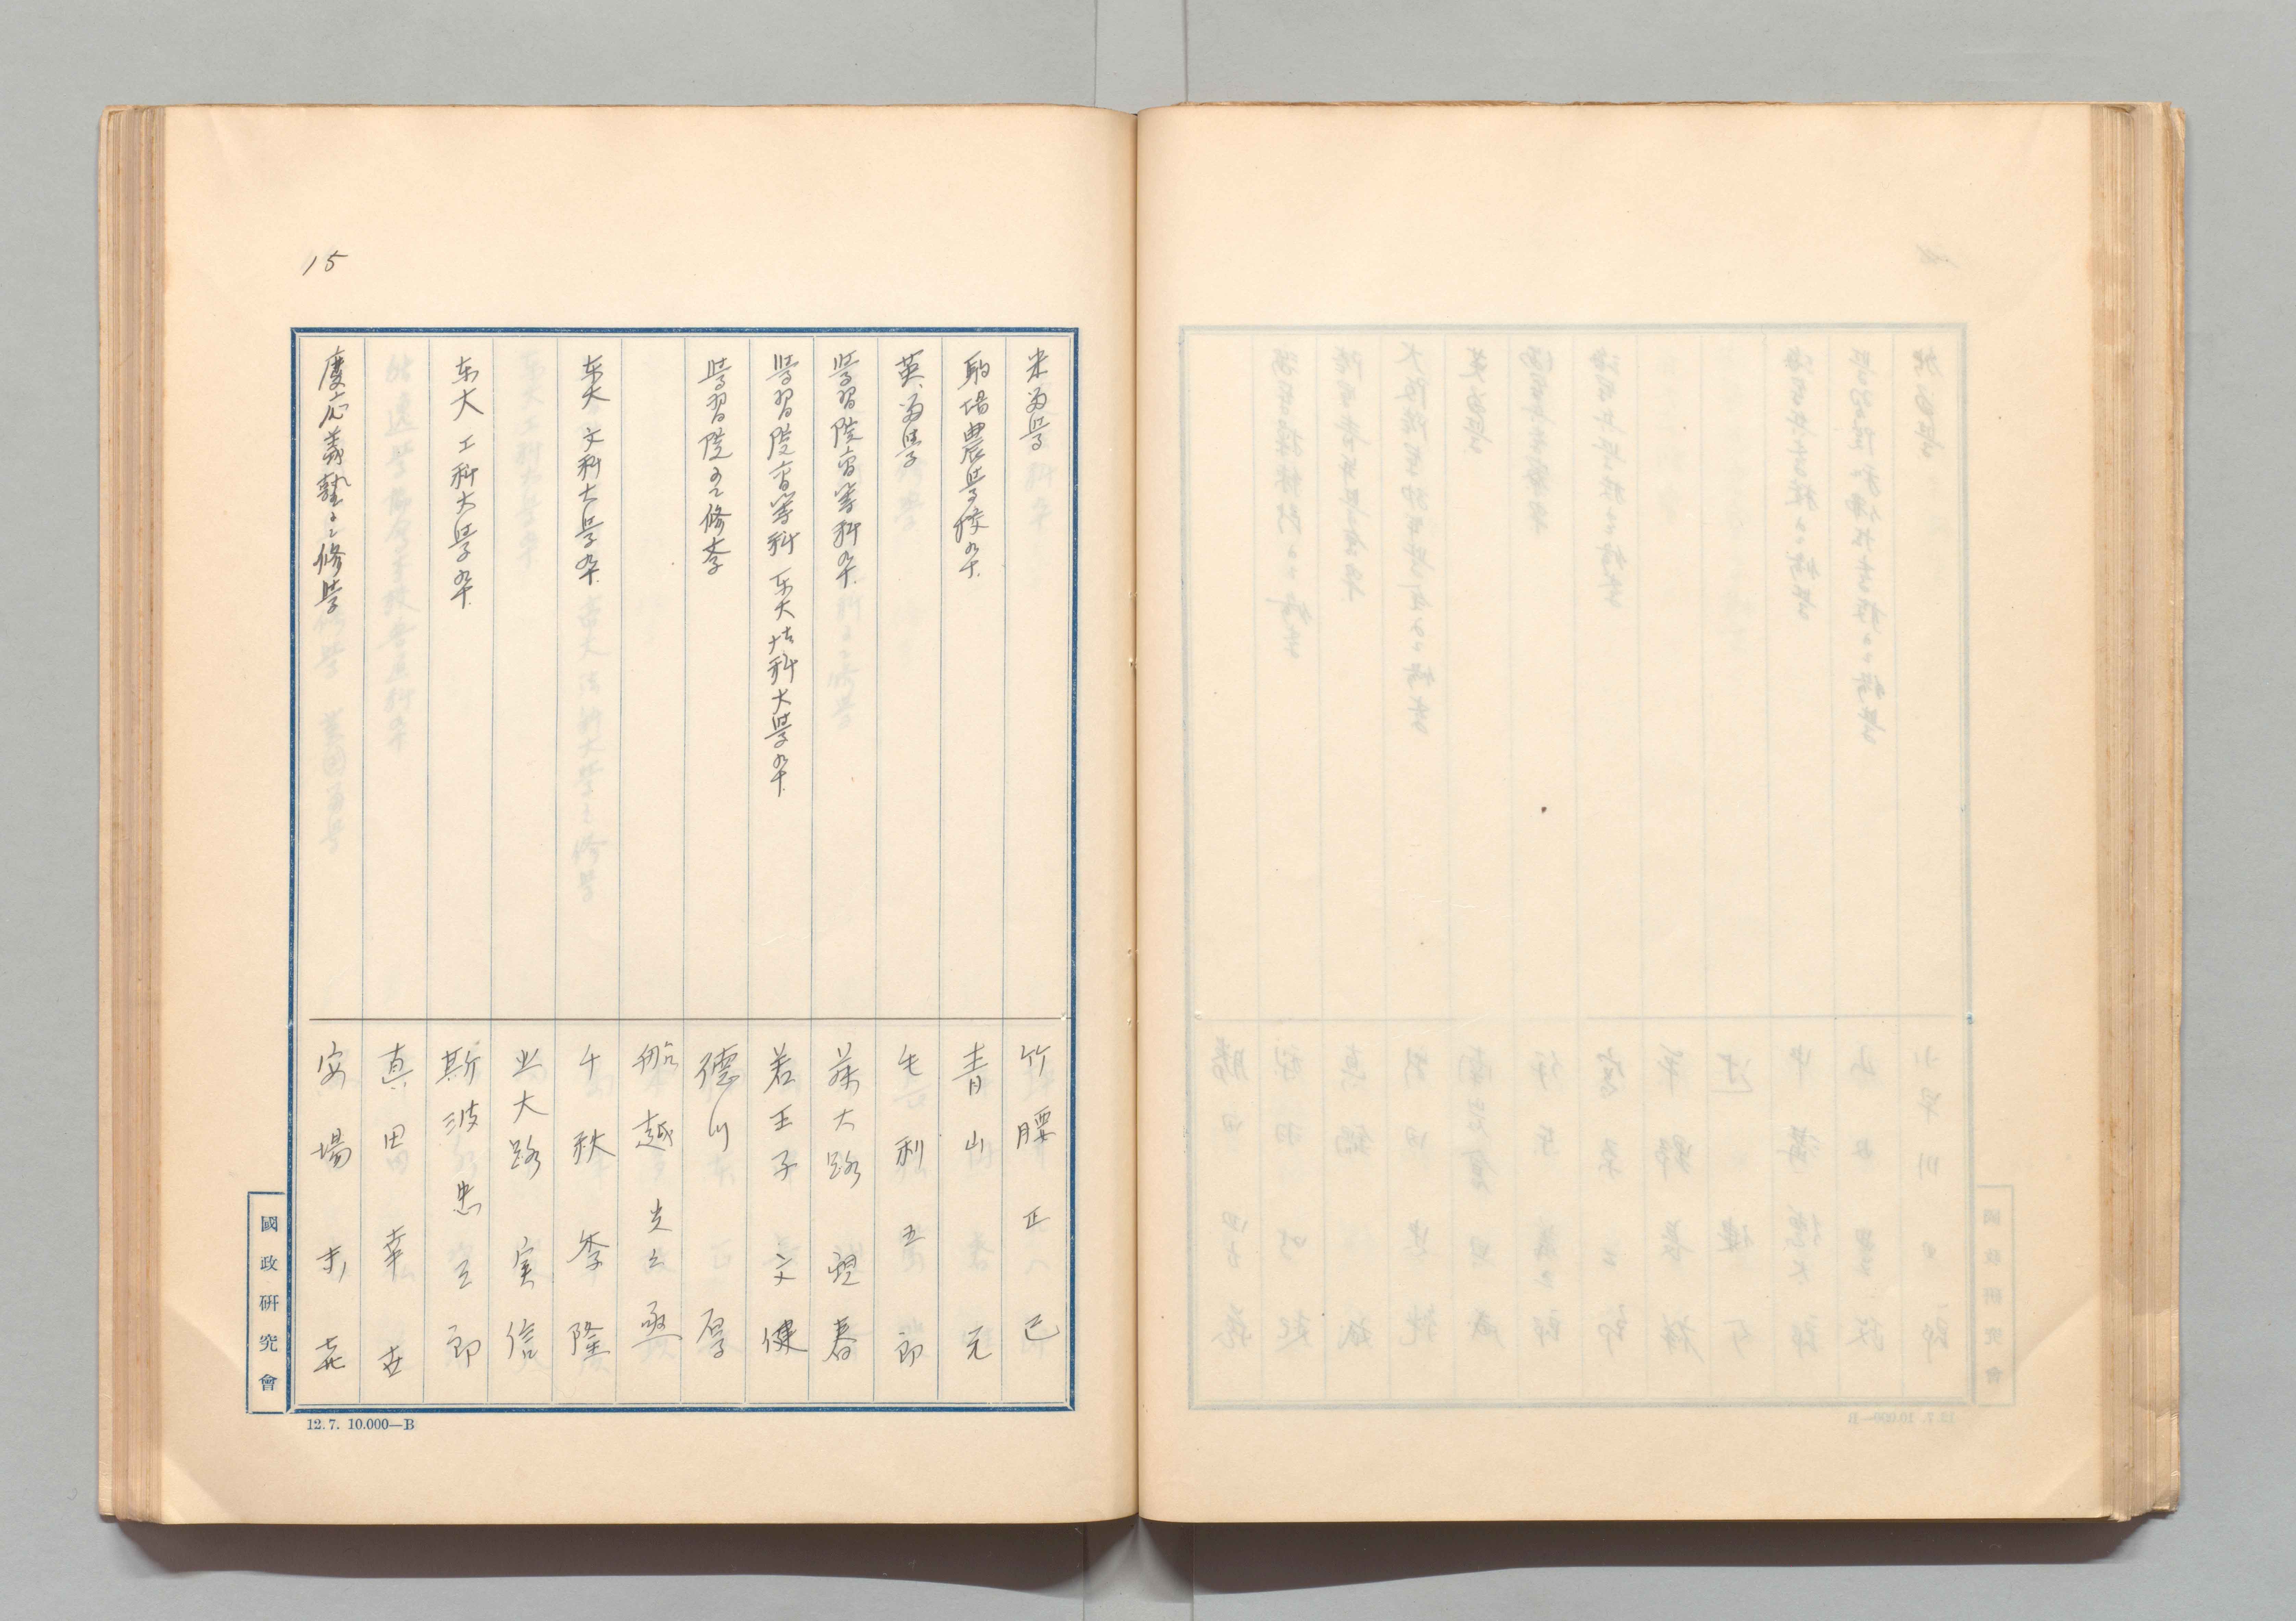 15
米留学
駒場農学校卒
英留学
学習院高等科卒
学習院高等科 东大法科大学卒
学習院ニ修学
东大文科大学卒
东大工科大学卒
慶応義塾ニ修学
竹腰正己
青山元
毛利五郎
萬里小路
若王子文健
徳川厚
船越光之丞
千秋季隆
北大路実信
斯波忠三郎
真田幸世
安場末喜
國政研究會
12.7. 10.000—B